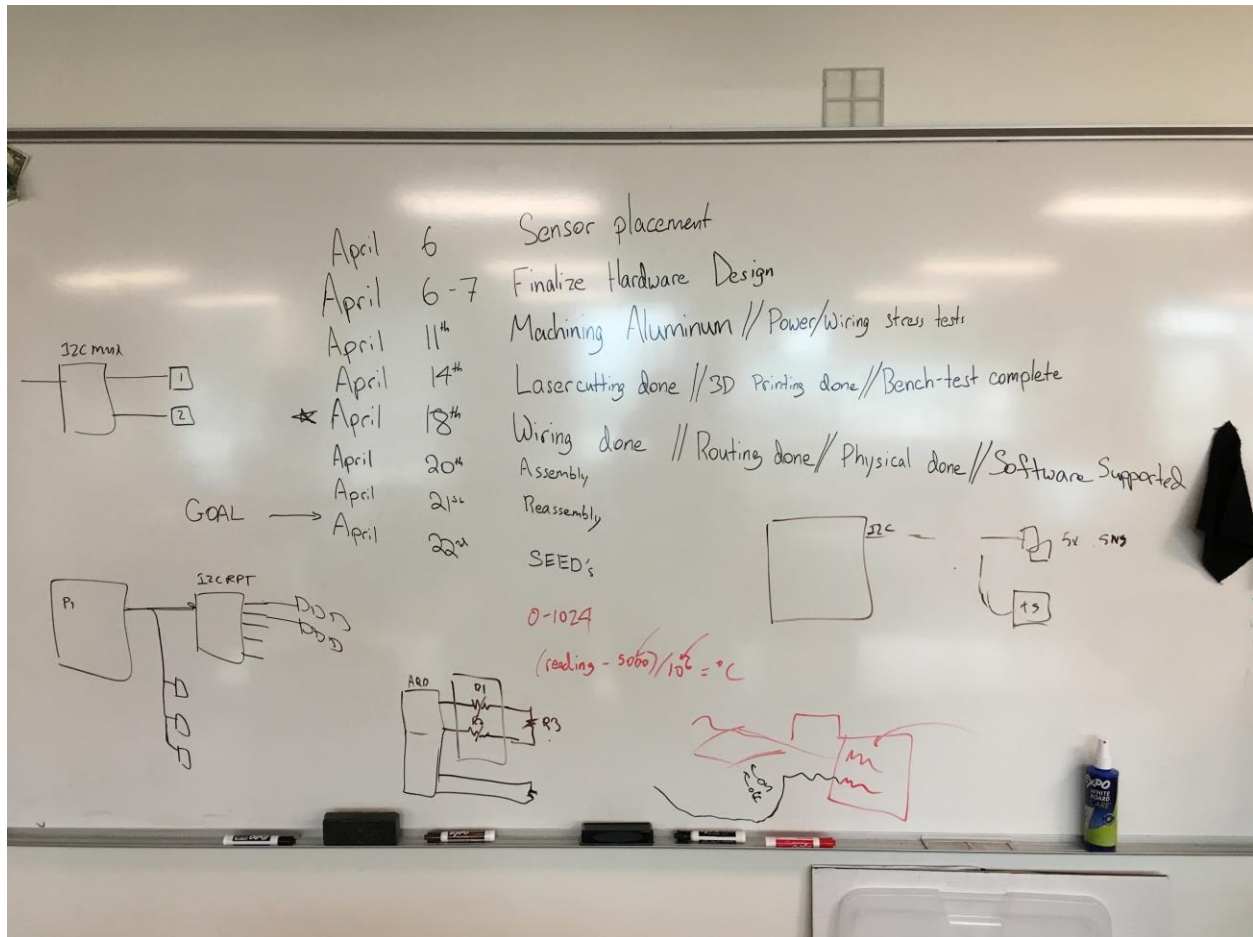 April 6 Sensor placement
April 6-7 Finalize Hardware Design
April 11th Machining Aluminum // Power/Wiring stress tests
April 14th Lasercutting done // 3D Printing done // Bench-test complete
April 18th Wiring done // Routing done // Physical done // Software Supported
April 20th Assembly
April 21st Reassembly
GOAL → April 22nd SEED's
I2C mux
1
2
I2C
5x SNS
TS
Pi
I2C RPT
0-1024
(reading - 500)/10 = °C
ARD
R1
R2
R3
ON
OFF
EXPO
WHITE
BOARD
CARE